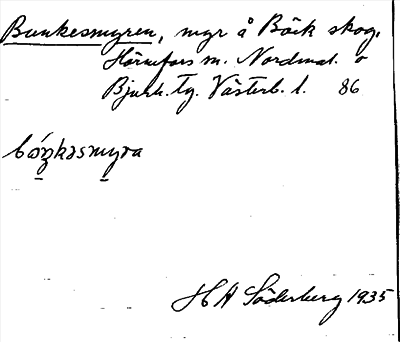 Bunkesmyren, myr å Bäck skog,
Hörnefors m. Nordmal. o
Bjurh. tg. Västerb. l. 86
bóŋkəsmyra
H A Söderberg 1935